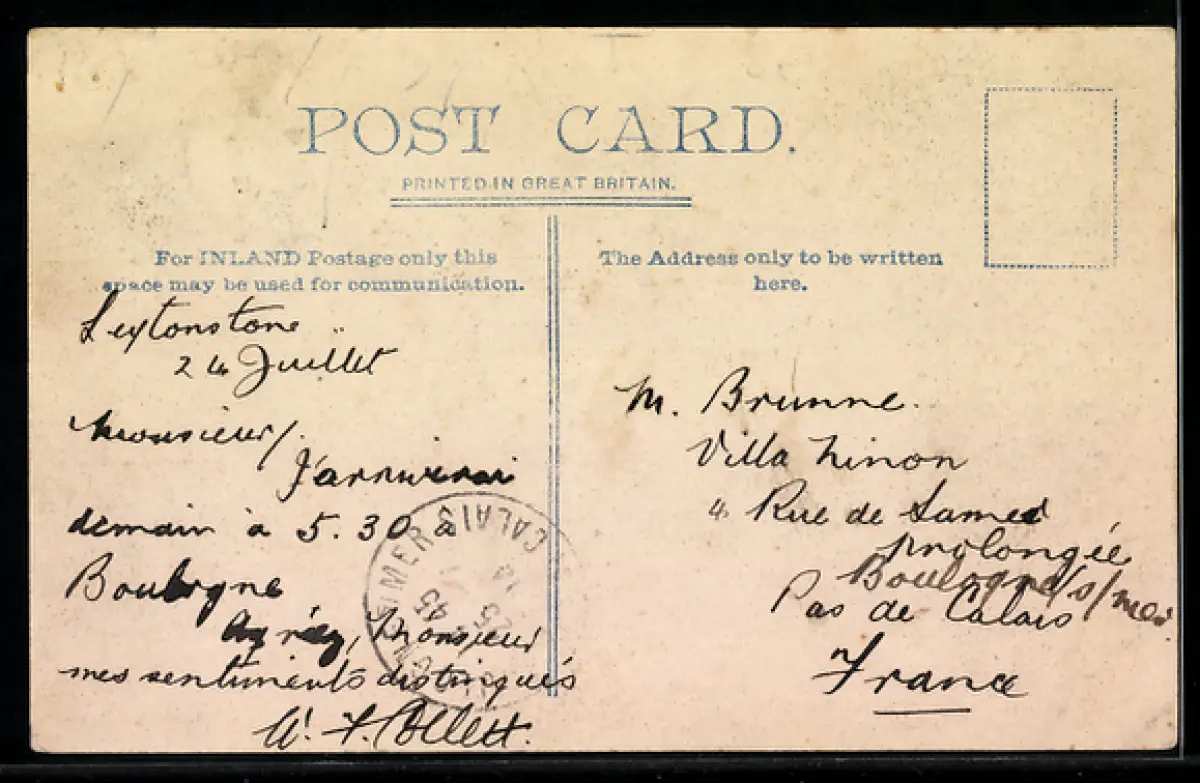 POST CARD.
PRINTED IN GREAT BRITAIN.
For INLAND Postage only this
space may be used for communication.
The Address only to be written
here.
Leytonstone
24 Juillet
Monsieur/.
J'arriverai
demain à 5.30 à
Boulogne
Agréez, Monsieur
mes sentiments distingués
W. F. Collett.
M. Brunne.
Villa Ninon
4 Rue de Samer
prolongée
Boulogne s/mer
Pas de Calais
France
CALAIS